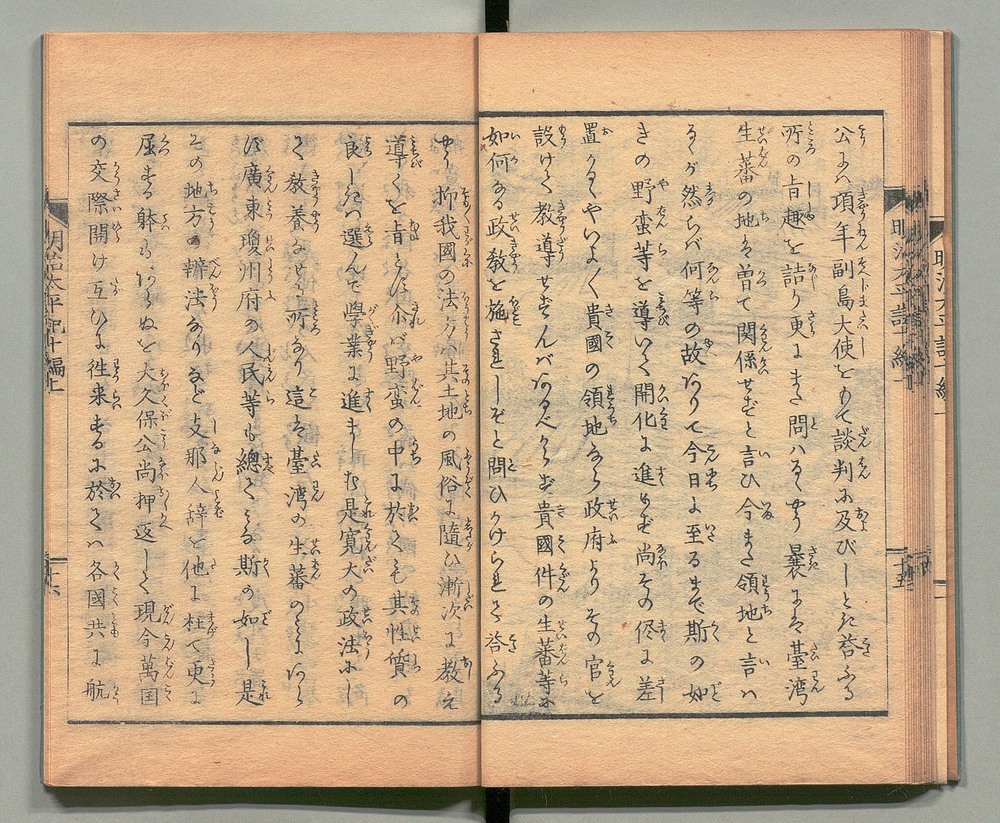 公よハ項年副島大使をもて談判ふ及びしとき答ふる
所の旨趣を詰り更にまた問ハるゝやう曩にそ臺湾
生蕃の地そ曽て関係せずと言ひ今また領地と言ハ
るゝが然らバ何等の故ありて今日よ至るまで斯の如
きの野蛮等を導いて開化よ進めず尚その侭よ差
置るゝやいよ〱貴國の領地なら政府よりその官を
設けて教導せずんバあるべからず貴國件の生蕃等ふ
如何なる政教を施されしぞと問ひかけられたる答ふる
やう抑我國の法たる其土地の風俗に隨ひ漸次に教え
導くを旨とす介バ野蛮の中に於ても其性質の
良しきハ選んで學業に進ましむ是寛大の政法ふし
て教養ふせる所あり這そ臺湾の生蕃のミにあら
ず廣東瓊州府の人民等も總てみな斯の如し是
その地方の辨法なりなど支那人辞を他に枉て更に
屈する躰もあらぬを大久保公尚押返して現今萬国
の交際開け互ひに徃来するふ於てハ各國共に航
明治太平記十編上